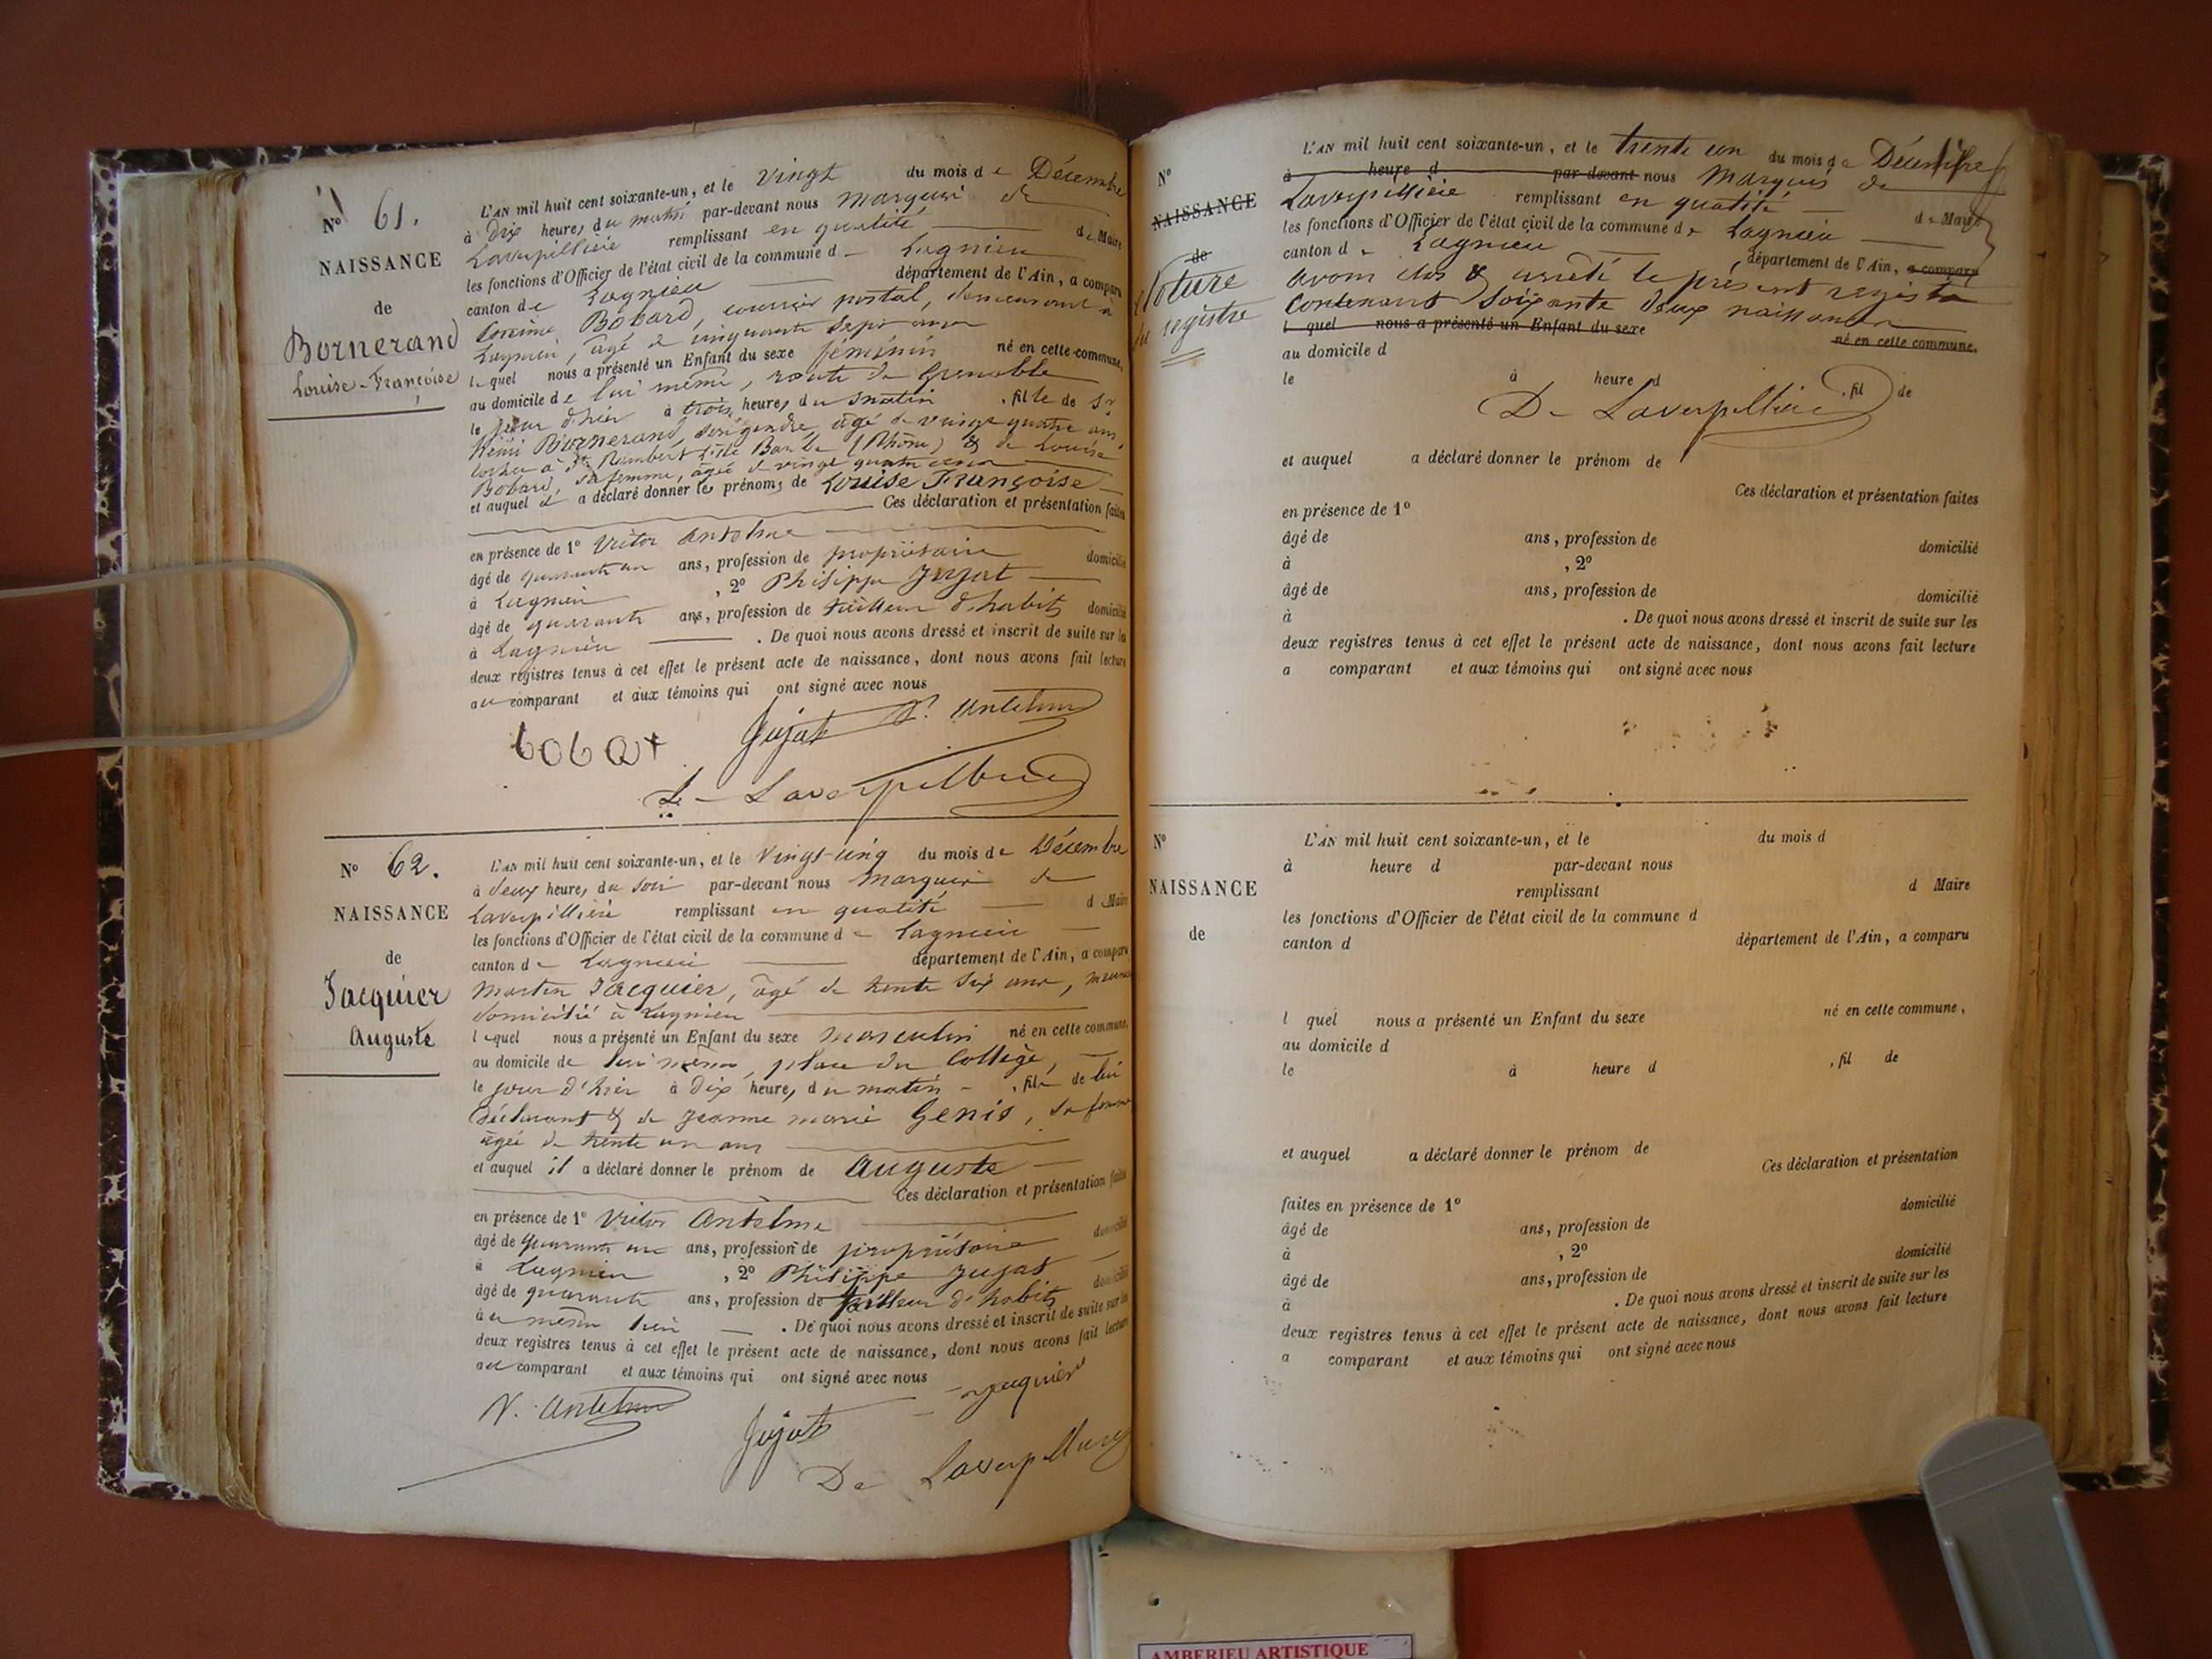 N° 61.
NAISSANCE
de
Bornerand
Louise-Françoise
L'AN mil huit cent soixante-un, et le vingt du mois de Décembre
à dix heures du matin par-devant nous Marquis de
Laverpillière remplissant en qualité de Maire
les fonctions d'Officier de l'état civil de la commune de Lagnieu
canton de Lagnieu département de l'Ain, a comparu
Bobard, courrier postal, demeurant à
Lagnieu, âgé de cinquante sept ans
lequel nous a présenté un Enfant du sexe féminin né en cette commune,
au domicile de lui même, route de Grenoble
le jour d'hier à trois heures du matin, fille de Sr
Rémi Bornerand, son gendre, âgé de vingt quatre ans,
à St Rambert l'isle Barbe (Rhône) & de Louise
Bobard, sa femme, âgée de vingt quatre ans
et auquel il a déclaré donner les prénoms de Louise Françoise
Ces déclaration et présentation faites
en présence de 1° Victor Anthelme
âgé de quarante un ans, profession de propriétaire domicilié
à Lagnieu, 2° Philippe Jujat
âgé de quarante ans, profession de tailleur d'habits domicilié
à Lagnieu. De quoi nous avons dressé et inscrit de suite sur les
deux registres tenus à cet effet le présent acte de naissance, dont nous avons fait lecture
au comparant et aux témoins qui ont signé avec nous
Jujat V. Anthelme
bobat
De Laverpillière
N° 62.
NAISSANCE
de
Jacquier
Auguste
L'AN mil huit cent soixante-un, et le vingt-un du mois de Décembre
à deux heures du soir par-devant nous Marquis de
Laverpillière remplissant en qualité d Maire
les fonctions d'Officier de l'état civil de la commune de Lagnieu
canton de Lagnieu département de l'Ain, a comparu
Martin Jacquier, âgé de trente six ans,
domicilié à Lagnieu
lequel nous a présenté un Enfant du sexe masculin né en cette commune,
au domicile de lui même, place du Collège,
le jour d'hier à dix heures du matin, fils de lui
déclarant & de Jeanne Marie Genis, sa femme
âgée de trente un ans
et auquel il a déclaré donner le prénom de Auguste
Ces déclaration et présentation faites
en présence de 1° Victor Anthelme
âgé de quarante un ans, profession de propriétaire domicilié
à Lagnieu, 2° Philippe Jujat
âgé de quarante ans, profession de tailleur d'habits domicilié
au même lieu. De quoi nous avons dressé et inscrit de suite sur les
deux registres tenus à cet effet le présent acte de naissance, dont nous avons fait lecture
au comparant et aux témoins qui ont signé avec nous
V. Anthelme Jacquier
Jujat
De Laverpillière
N°
NAISSANCE
de
Cloture
du registre
L'AN mil huit cent soixante-un, et le trente un du mois de Décembre
à heure d par devant nous Marquis de
Laverpillière remplissant en qualité de Maire
les fonctions d'Officier de l'état civil de la commune de Lagnieu
canton de Lagnieu département de l'Ain, a comparu
avons clos & arrêté le présent registre
contenant soixante deux naissances
l quel nous a présenté un Enfant du sexe né en cette commune,
au domicile d
le à heure d , fil de
De Laverpillière
et auquel a déclaré donner le prénom de
Ces déclaration et présentation faites
en présence de 1°
âgé de ans, profession de domicilié
à , 2°
âgé de ans, profession de domicilié
à . De quoi nous avons dressé et inscrit de suite sur les
deux registres tenus à cet effet le présent acte de naissance, dont nous avons fait lecture
a comparant et aux témoins qui ont signé avec nous
N°
NAISSANCE
de
L'AN mil huit cent soixante-un, et le du mois d
à heure d par-devant nous
remplissant d Maire
les fonctions d'Officier de l'état civil de la commune d
canton d département de l'Ain, a comparu
l quel nous a présenté un Enfant du sexe né en cette commune,
au domicile d
le à heure d , fil de
et auquel a déclaré donner le prénom de
Ces déclaration et présentation
faites en présence de 1° domicilié
âgé de ans, profession de
à , 2° domicilié
âgé de ans, profession de
à . De quoi nous avons dressé et inscrit de suite sur les
deux registres tenus à cet effet le présent acte de naissance, dont nous avons fait lecture
a comparant et aux témoins qui ont signé avec nous
AMBERIEU ARTISTIQUE